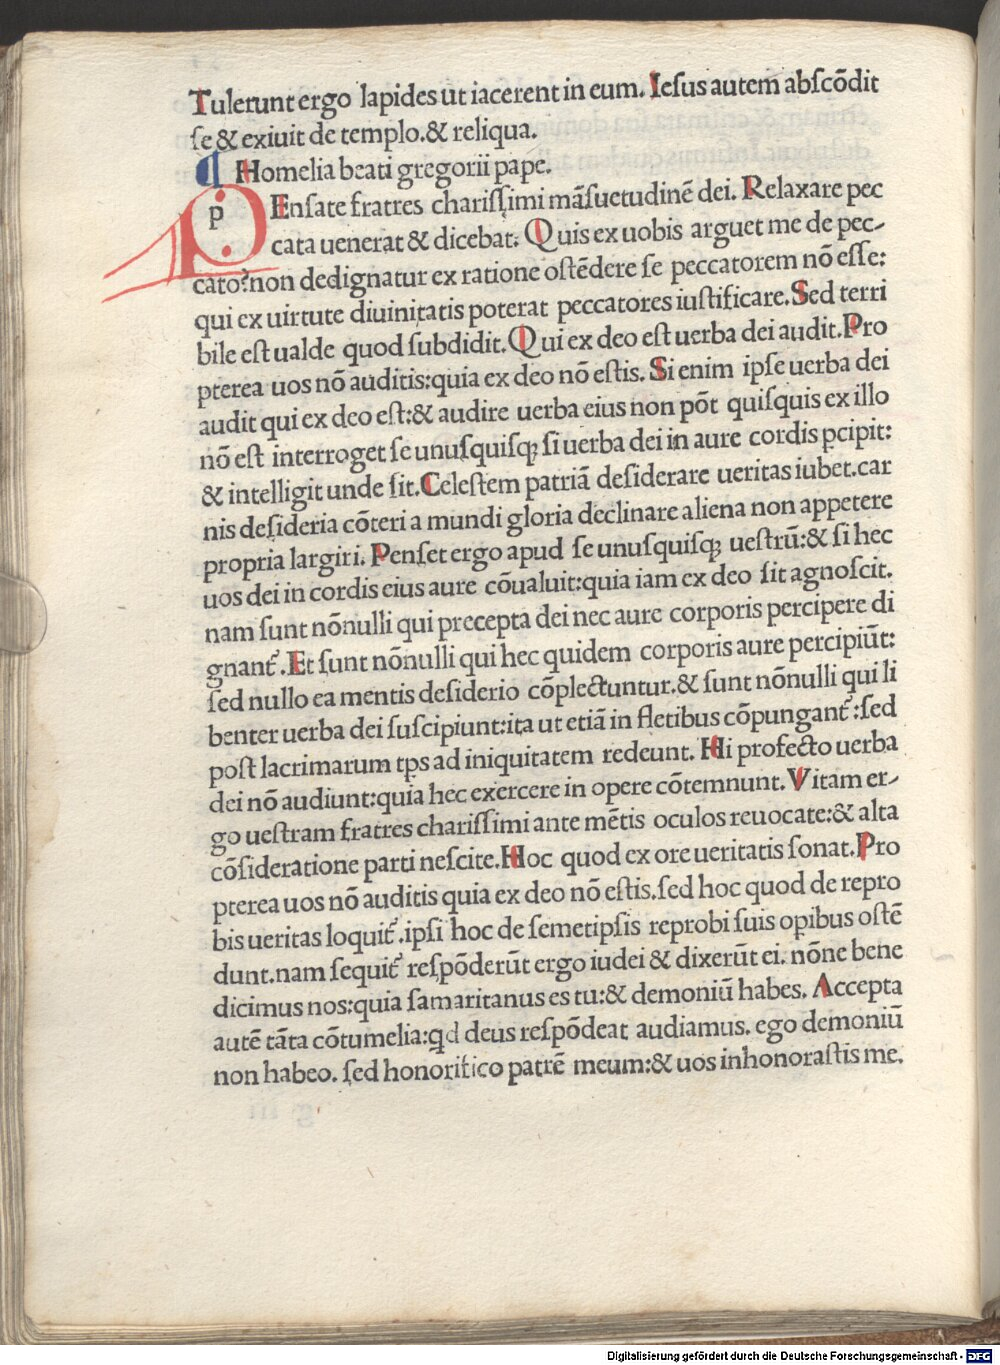 Tulerunt ergo lapides ut iacerent in eum. Iesus autem abſcōdit
ſe & exiuit de templo.& reliqua.
¶ Homelia beati gregorii pape.
PEnſate fratres chariſſimi māſuetudinē dei. Relaxare pec
cata uenerat & dicebat. Quis ex uobis arguet me de pec-
cato?non dedignatur ex ratione oſtēdere ſe peccatorem nō eſſe:
qui ex uirtute diuinitatis poterat peccatores iuſtificare. Sed terri
bile eſt ualde quod ſubdidit. Qui ex deo eſt uerba dei audit. Pro
pterea uos nō auditis:quia ex deo nō eſtis. Si enim ipſe uerba dei
audit qui ex deo eſt:& audire uerba eius non pōt quiſquis ex illo
nō eſt interroget ſe unuſquiſqꝫ ſi uerba dei in aure cordis ꝑcipit:
& intelligit unde ſit. Celeſtem patriā deſiderare ueritas iubet.car
nis deſideria cōteri a mundi gloria declinare aliena non appetere
propria largiri. Penſet ergo apud ſe unuſquiſqꝫ ueſtrū:& ſi hec
uos dei in cordis eius aure cōualuit:quia iam ex deo ſit agnoſcit.
nam ſunt nōnulli qui precepta dei nec aure corporis percipere di
gnant᷑. Et ſunt nōnulli qui hec quidem corporis aure percipiūt:
ſed nullo ea mentis deſiderio cōplectuntur.& ſunt nōnulli qui li
benter uerba dei ſuſcipiunt:ita ut etiā in fletibus cōpungant᷑:ſed
poſt lacrimarum tps ad iniquitatem redeunt. Hi profecto uerba
dei nō audiunt:quia hec exercere in opere cōtemnunt. Vitam er-
go ueſtram fratres chariſſimi ante mētis oculos reuocate:& alta
cōſideratione parti neſcite. Hoc quod ex ore ueritatis ſonat. Pro
pterea uos nō auditis quia ex deo nō eſtis.ſed hoc quod de repro
bis ueritas loquit᷑.ipſi hoc de ſemetipſis reprobi ſuis opibus oſtē
dunt.nam ſequit᷑ reſpōderūt ergo iudei & dixerūt ei. nōne bene
dicimus nos:quia ſamaritanus es tu:& demoniū habes. Accepta
autē tāta cōtumelia:qd deus reſpōdeat audiamus. ego demoniū
non habeo. ſed honorifico patrē meum:& uos inhonoraſtis me.
Digitalisierung gefördert durch die Deutsche Forschungsgemeinschaft - DFG